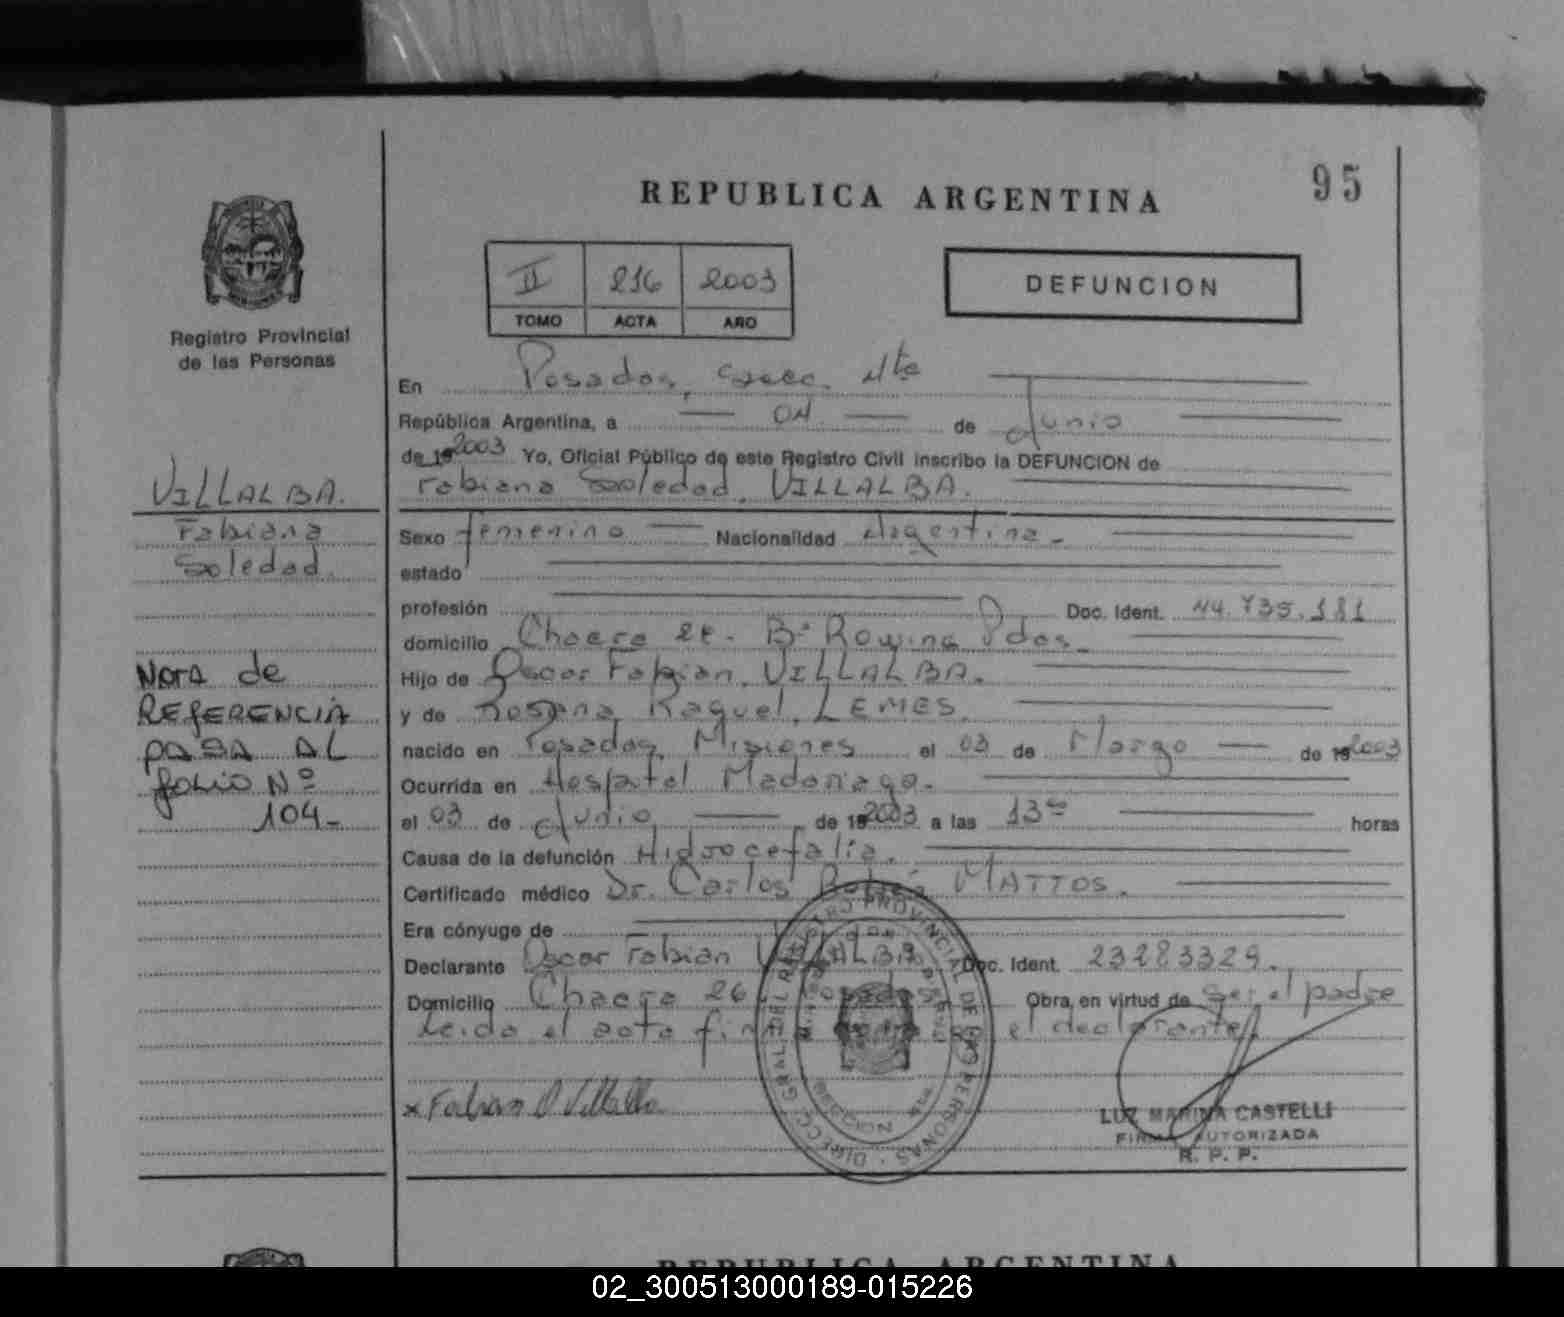 95
REPUBLICA ARGENTINA
II 216 2003
TOMO ACTA AÑO
DEFUNCION
Registro Provincial
de las Personas
En Posadas, Secc. 4ta
República Argentina, a 04 de Junio
de 19 2003 Yo, Oficial Público de este Registro Civil inscribo la DEFUNCION de
Fabiana Soledad, VILLALBA.
VILLALBA.
Fabiana
Soledad.
Sexo femenino Nacionalidad Argentina
estado
profesión Doc. Ident. 44.735.181
domicilio Chacra 26. Bº Rowing Pdas.
Hijo de Oscar Fabian, VILLALBA.
y de Rosana Raquel, LEMES.
nacido en Posadas, Misiones el 03 de Marzo de 19 2003
Ocurrida en Hospital Madariaga.
el 03 de Junio de 19 2003 a las 13 horas
Causa de la defunción Hidrocefalia.
Certificado médico Dr. Carlos MATTOS.
Era cónyuge de
Declarante Oscar Fabian VILLALBA Doc. Ident. 23283329.
Domicilio Chacra 26 Posadas Obra, en virtud de ser el padre
Leida el acta el declarante.
NOTA de
REFERENCIA
PASA AL
folio Nº
104-
x Fabian O Villalba
DIRECC. GRAL. DEL REGISTRO PROVINCIAL DE LAS PERSONAS
SECCION 4ta
LUZ MARINA CASTELLI
FIRMA AUTORIZADA
R. P. P.
REPUBLICA ARGENTINA
02_300513000189-015226